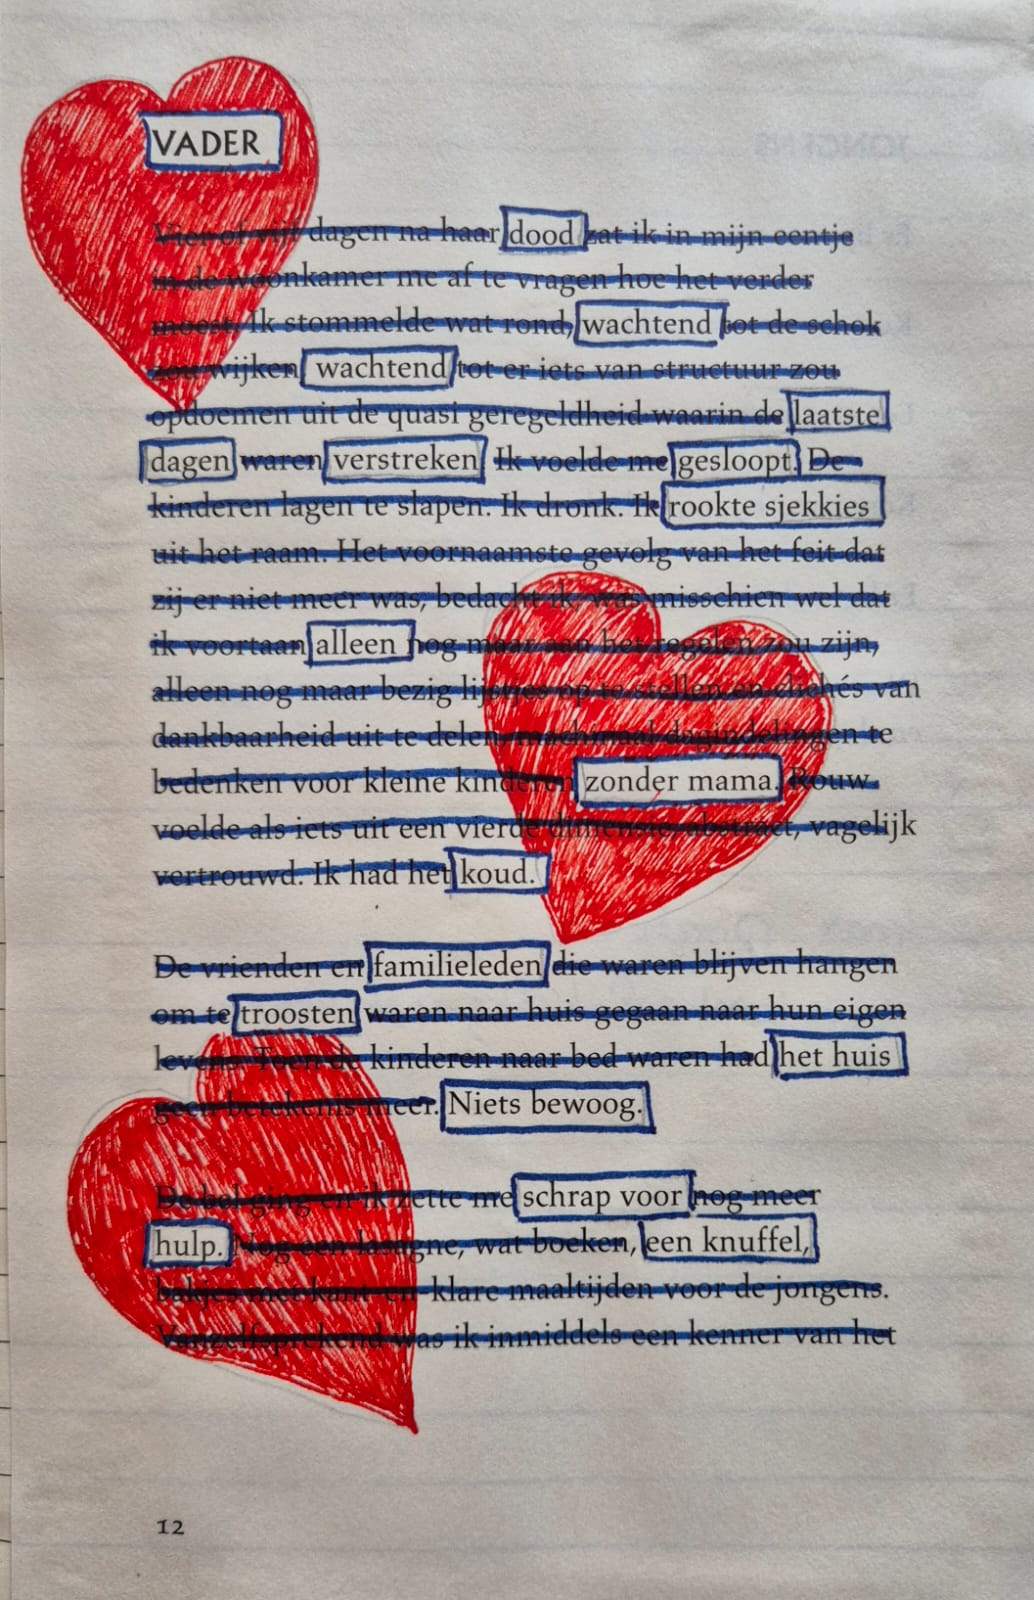 VADER
Vier of vijf dagen na haar dood zat ik in mijn eentje
in de woonkamer me af te vragen hoe het verder
moest. Ik stommelde wat rond, wachtend tot de schok
zou wijken wachtend tot er iets van structuur zou
opdoemen uit de quasi geregeldheid waarin de laatste
dagen waren verstreken Ik voelde me gesloopt. De
kinderen lagen te slapen. Ik dronk. Ik rookte sjekkies
uit het raam. Het voornaamste gevolg van het feit dat
zij er niet meer was, bedacht ik, was misschien wel dat
ik voortaan alleen nog maar aan het regelen zou zijn,
alleen nog maar bezig lijstjes op te stellen en clichés van
dankbaarheid uit te delen, machinaal dagindelingen te
bedenken voor kleine kinderen zonder mama. Rouw
voelde als iets uit een vierde dimensie, abstract, vagelijk
vertrouwd. Ik had het koud.
De vrienden en familieleden die waren blijven hangen
om te troosten waren naar huis gegaan naar hun eigen
levens. Toen de kinderen naar bed waren had het huis
geen betekenis meer. Niets bewoog.
De bel ging en ik zette me schrap voor nog meer
hulp. Nog een lasagne, wat boeken, een knuffel,
bakjes met kant-en-klare maaltijden voor de jongens.
Vanzelfsprekend was ik inmiddels een kenner van het
12